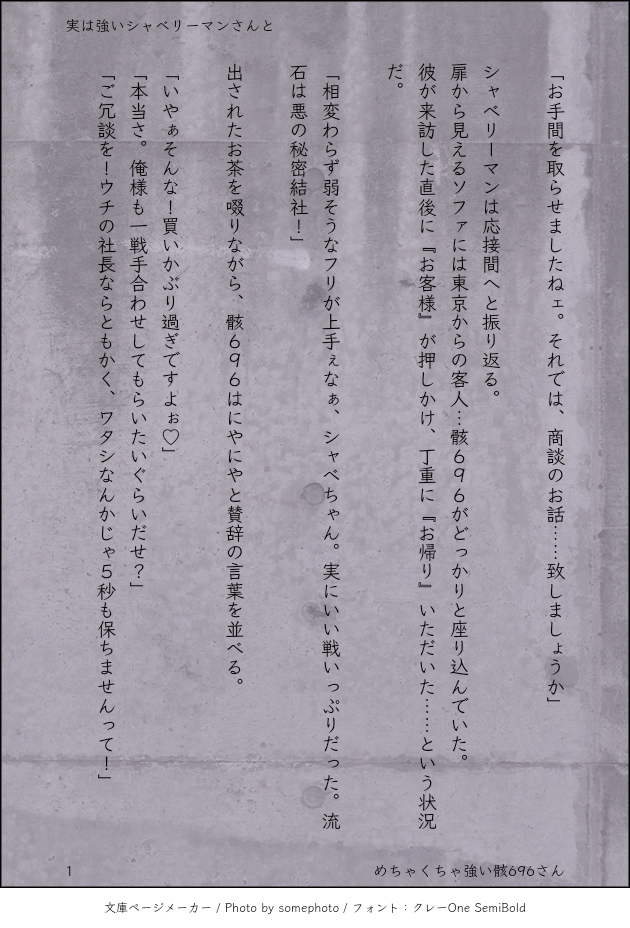 実は強いシャベリーマンさんと
「お手間を取らせましたねェ。それでは、商談のお話……致しましょうか」
シャベリーマンは応接間へと振り返る。
扉から見えるソファには東京からの客人…骸６９６がどっかりと座り込んでいた。
彼が来訪した直後に『お客様』が押しかけ、丁重に『お帰り』いただいた……という状況
だ。
「相変わらず弱そうなフリが上手ぇなぁ、シャベちゃん。実にいい戦いっぷりだった。流
石は悪の秘密結社！」
出されたお茶を啜りながら、骸６９６はにやにやと賛辞の言葉を並べる。
「いやぁそんな！買いかぶり過ぎですよぉ♡」
「本当さ。俺様も一戦手合わせしてもらいたいぐらいだぜ？」
「ご冗談を！ウチの社長ならともかく、ワタシなんかじゃ５秒も保ちませんって！」
1
めちゃくちゃ強い骸696さん
文庫ページメーカー / Photo by somephoto / フォント：クレーOne SemiBold